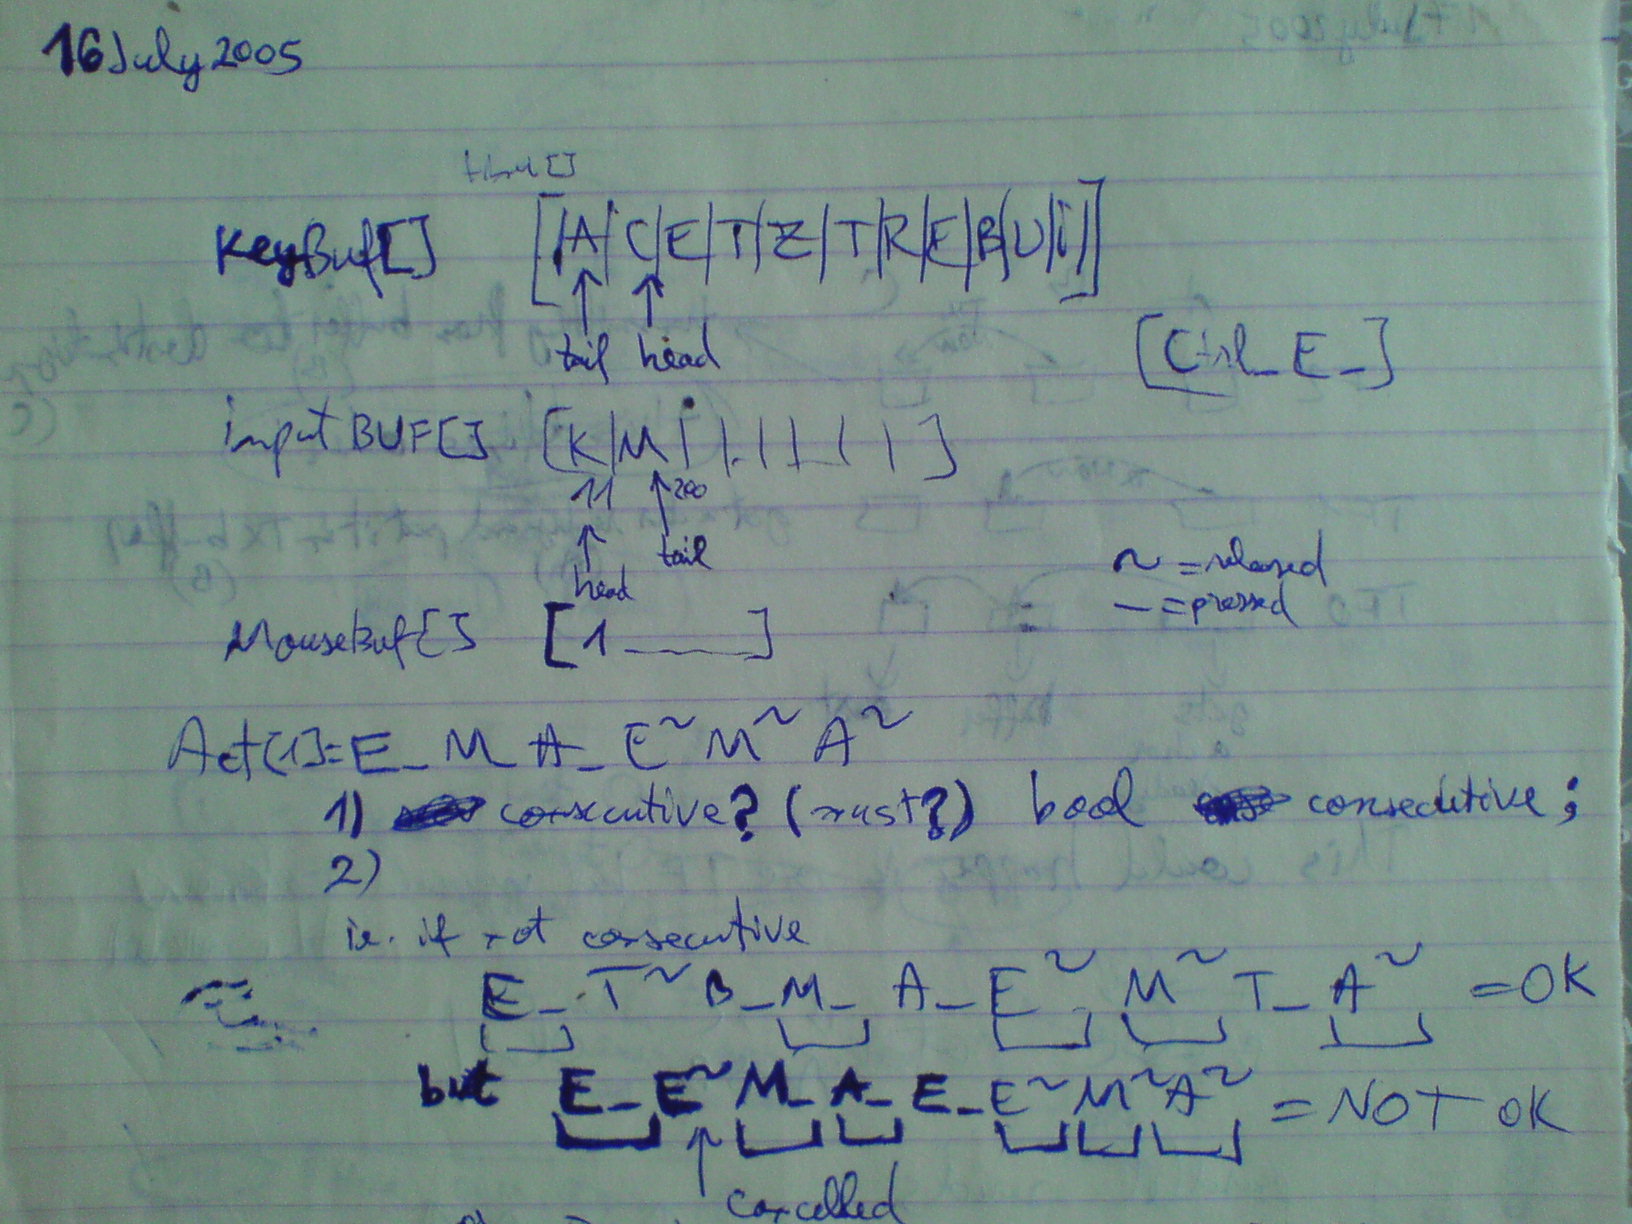 16 July 2005
KeyBuf[] [|A|C|E|T|Z|T|R|E|B|U|i|]
tail head
[Ctrl_E_]
input BUF[] [K|M| | | | | | ]
11 200
head tail
~ = released
_ = pressed
MouseBuf[] [1____]
Act[1]=E_M_A_E~M~A~
1) consecutive? (must?) bool consecutive;
2)
ie. if not consecutive
E_T~B_M_A_E~M~T_A~ =OK
but E_E~M_A_E_E~M~A~ = NOT OK
cancelled